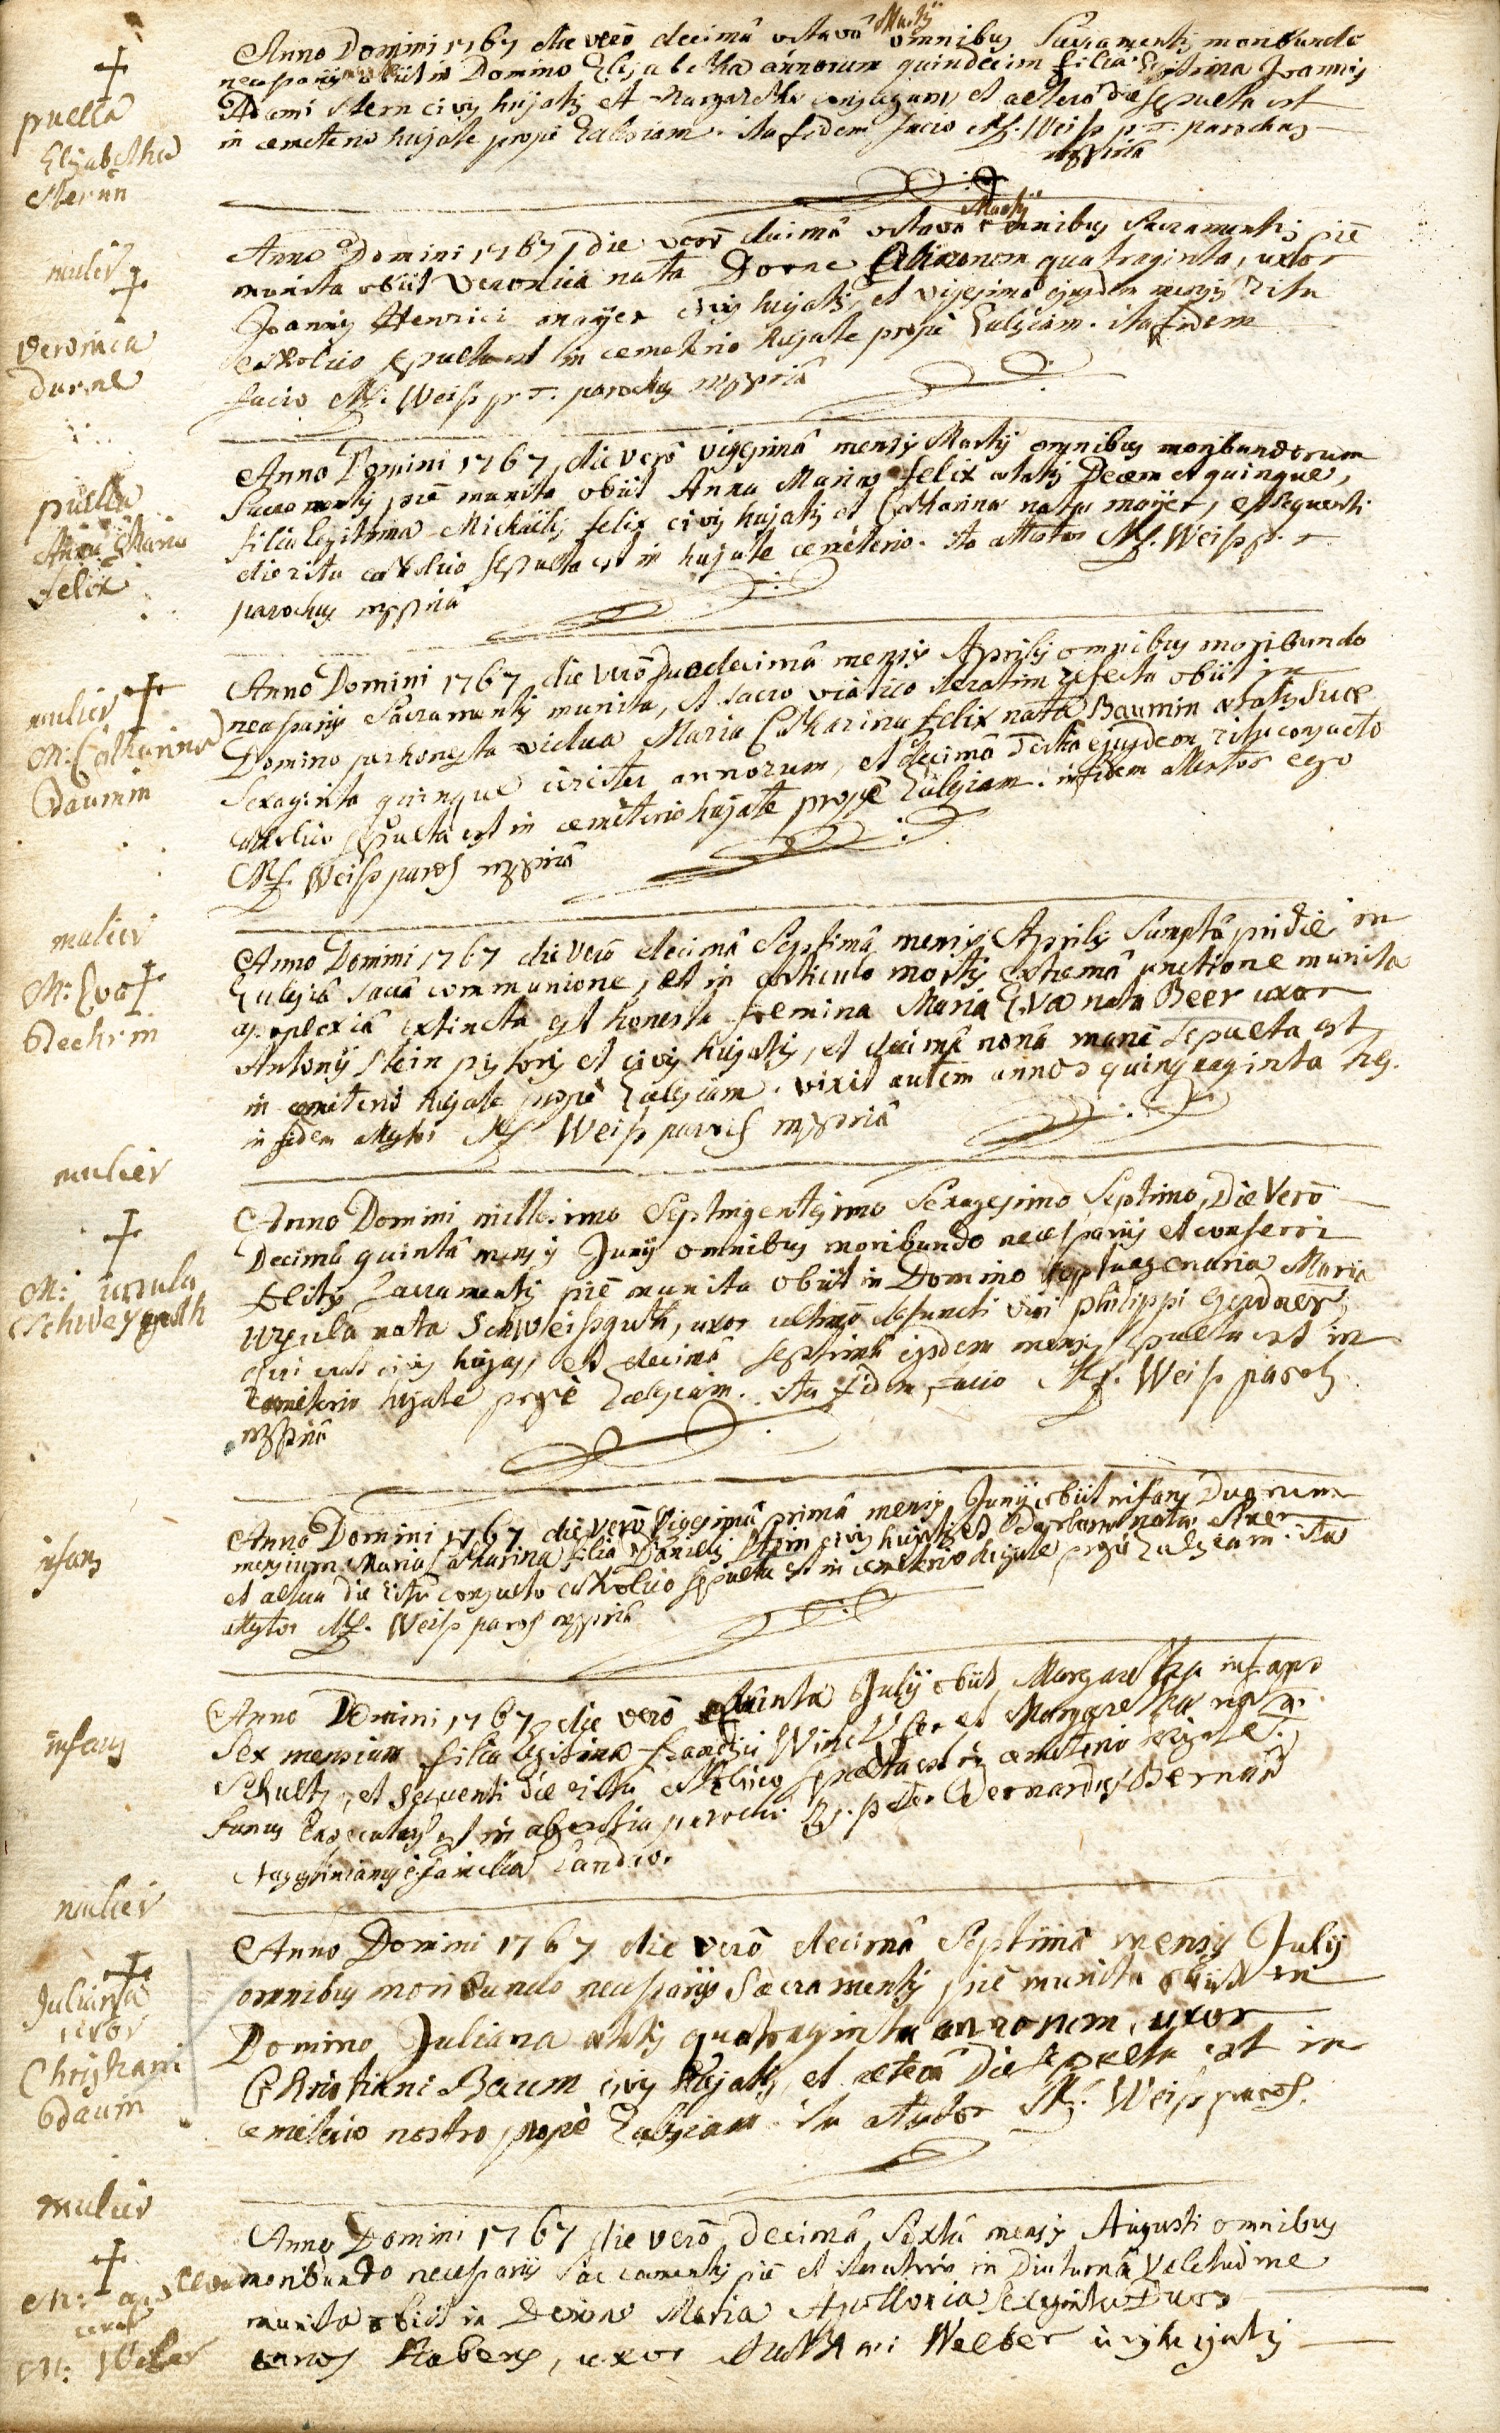 puella
Elisabetha
Sternin
Anno Domini 1767 die verò decimâ octavâ Martij omnibus Sacramentis moribundo
necessarijs obiit in Domino Elisabetha annorum quindecim filia legitima Joannis
Adami Stern civis hujatis et Margarethæ conjugum, et alterâ die sepulta est
in cœmeterio hujate propè Ecclesiam. ita fidem facio M. Weiss p. T. parochus
mppriâ
mulier
Veronica
Dorne
Anno Domini 1767, die verò decimâ octavâ Martij omnibus Sacramentis piè
munita obiit Veronica nata Dorne annorum quatraginta, uxor
Joannis Henrici mayer civis hujatis, et vigesimâ ejusdem mensis ritu
catholico sepulta est in cœmeterio hujate propè Ecclesiam. ita fidem
facio M. Weiss p. T. parochus mppriâ
puella
Anna Maria
Felix
Anno Domini 1767, die verò vigesimâ mensis Martij omnibus moribundorum
Sacramentis piè munita obiit Anna Maria felix ætatis Decem et quinque,
filia legitima Michaëlis felix civis hujatis et Catharinæ natæ mayer, et sequenti
die ritu catholico sepulta est in hujate cœmeterio. ita attestor M. Weiss p. T.
parochus mppriâ
mulier
M: Catharina
Baumin
Anno Domini 1767, die verò Duodecimâ mensis Aprilis omnibus moribundo
necessarijs Sacramentis munita, et sacro viatico iteratim refecta obiit in
Domino perhonesta vidua Maria Catharina felix nata Baumin ætatis suæ
Sexaginta quinque circiter annorum, et decimâ Tertiâ ejusdem ritu consueto
catholico sepulta est in cœmeterio hujate propè Ecclesiam. in fidem attestor ego
M. Weiss paroch mppriâ
mulier
M: Eva
Beehrin
Anno Domini 1767 die verò decimâ Septimâ mensis Aprilis Sumptâ pridie in
Ecclesiâ sacrâ communione, et in articulo mortis extremâ unctione munita
apoplexiâ extincta est honesta fœmina Maria Eva nata Beer uxor
Antonij Stein pistoris et civis hujatis, et decimâ nonâ manè sepulta est
in cœmeterio hujate propè Ecclesiam. vixit autem annos quinquaginta
in fidem attestor M. Weiss paroch mppriâ
mulier
M: ursula
Schweysguth
Anno Domini millesimo Septingentesimo Sexagesimo Septimo, Die Verò
Decimâ quintâ mensis Junij omnibus moribundo necessarijs et conferri
solitis Sacramentis piè munita obiit in Domino septuagenaria Maria
Ursula nata Schweissguth, uxor ultimò defuncti viri Philippi
qui erat civis hujas, et decimâ septimâ ejusdem mensis sepulta est in
Cœmeterio hujate propè Ecclesiam. ita fidem facio M. Weiss paroch
mppriâ
infans
Anno Domini 1767 die verò Vigesimâ primâ mensis Junij obiit infans Duorum
mensium Maria Catharina filia Danielis civis hujatis et Barbaræ natæ
et alterâ die ritu consueto catholico sepulta est in cœmeterio hujate propè Ecclesiam. ita
attestor M. Weiss paroch mppriâ
infans
Anno Domini 1767, die verò quinta Julij obiit Margaretha infans
Sex mensium filia legitima francisci Winckler et Margarethæ natæ
Schultz, et sequenti die ritu catholico sepulta est in cœmeterio hujate.
funus Executus est in absentia parochi R. pater Bernardus
Augustinianus è familia Landavi.
mulier
Juliana
uxor
Christiani
Baum
Anno Domini 1767 die verò decimâ Septimâ mensis Julij
omnibus moribundo necessarijs Sacramentis piè munita obiit in
Domino Juliana ætatis quatraginta annorum, uxor
Christiani Baum civis hujatis, et alterâ Die sepulta est in
cœmeterio nostro propè Ecclesiam. ita attestor M. Weiss paroch.
mulier
M:
uxor
M: Weber
Anno Domini 1767 die verò Decimâ Sextâ mensis Augusti omnibus
moribundo necessarijs sacramentis piè et iteratò in Diuturnâ Valetudine
munita obiit in Domino Maria Apollonia Sexaginta Duos
annos habens, uxor Weeber civis hujatis